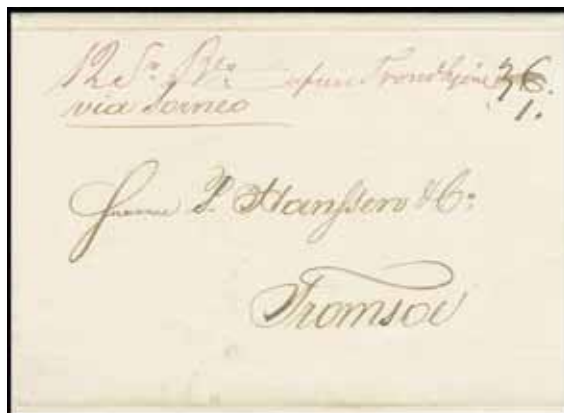 12 Sr. Bco. Trondhjem 36.
via Torneo 1.
Herren P. Hanssen & Co:
Tromsoe